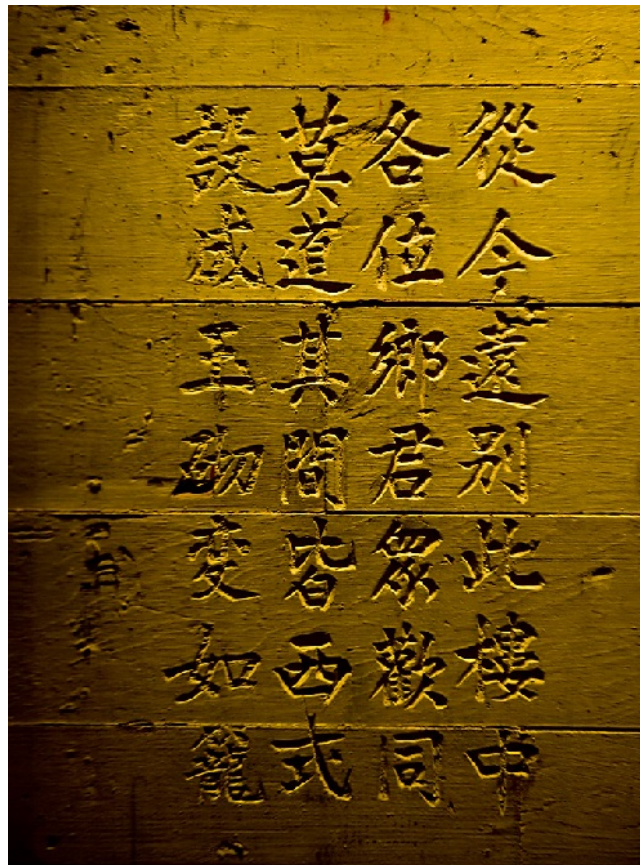 從今遠别此樓中
各位鄉君眾歡同
莫道其間皆西式
設成玉砌变如籠